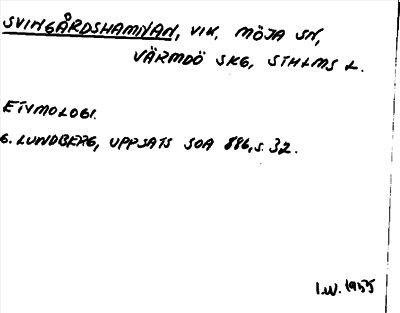 SVINGÅRDSHAMNAN, VIK, MÖJA SN,
VÄRMDÖ SKG, STHLMS L.
ETYMOLOGI.
G. LUNDBERG, UPPSATS SOA 886, S. 32.
I.W. 1955